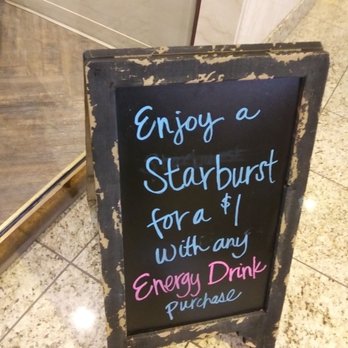 Enjoy a
Starburst
for a $1
with any
Energy Drink
purchase